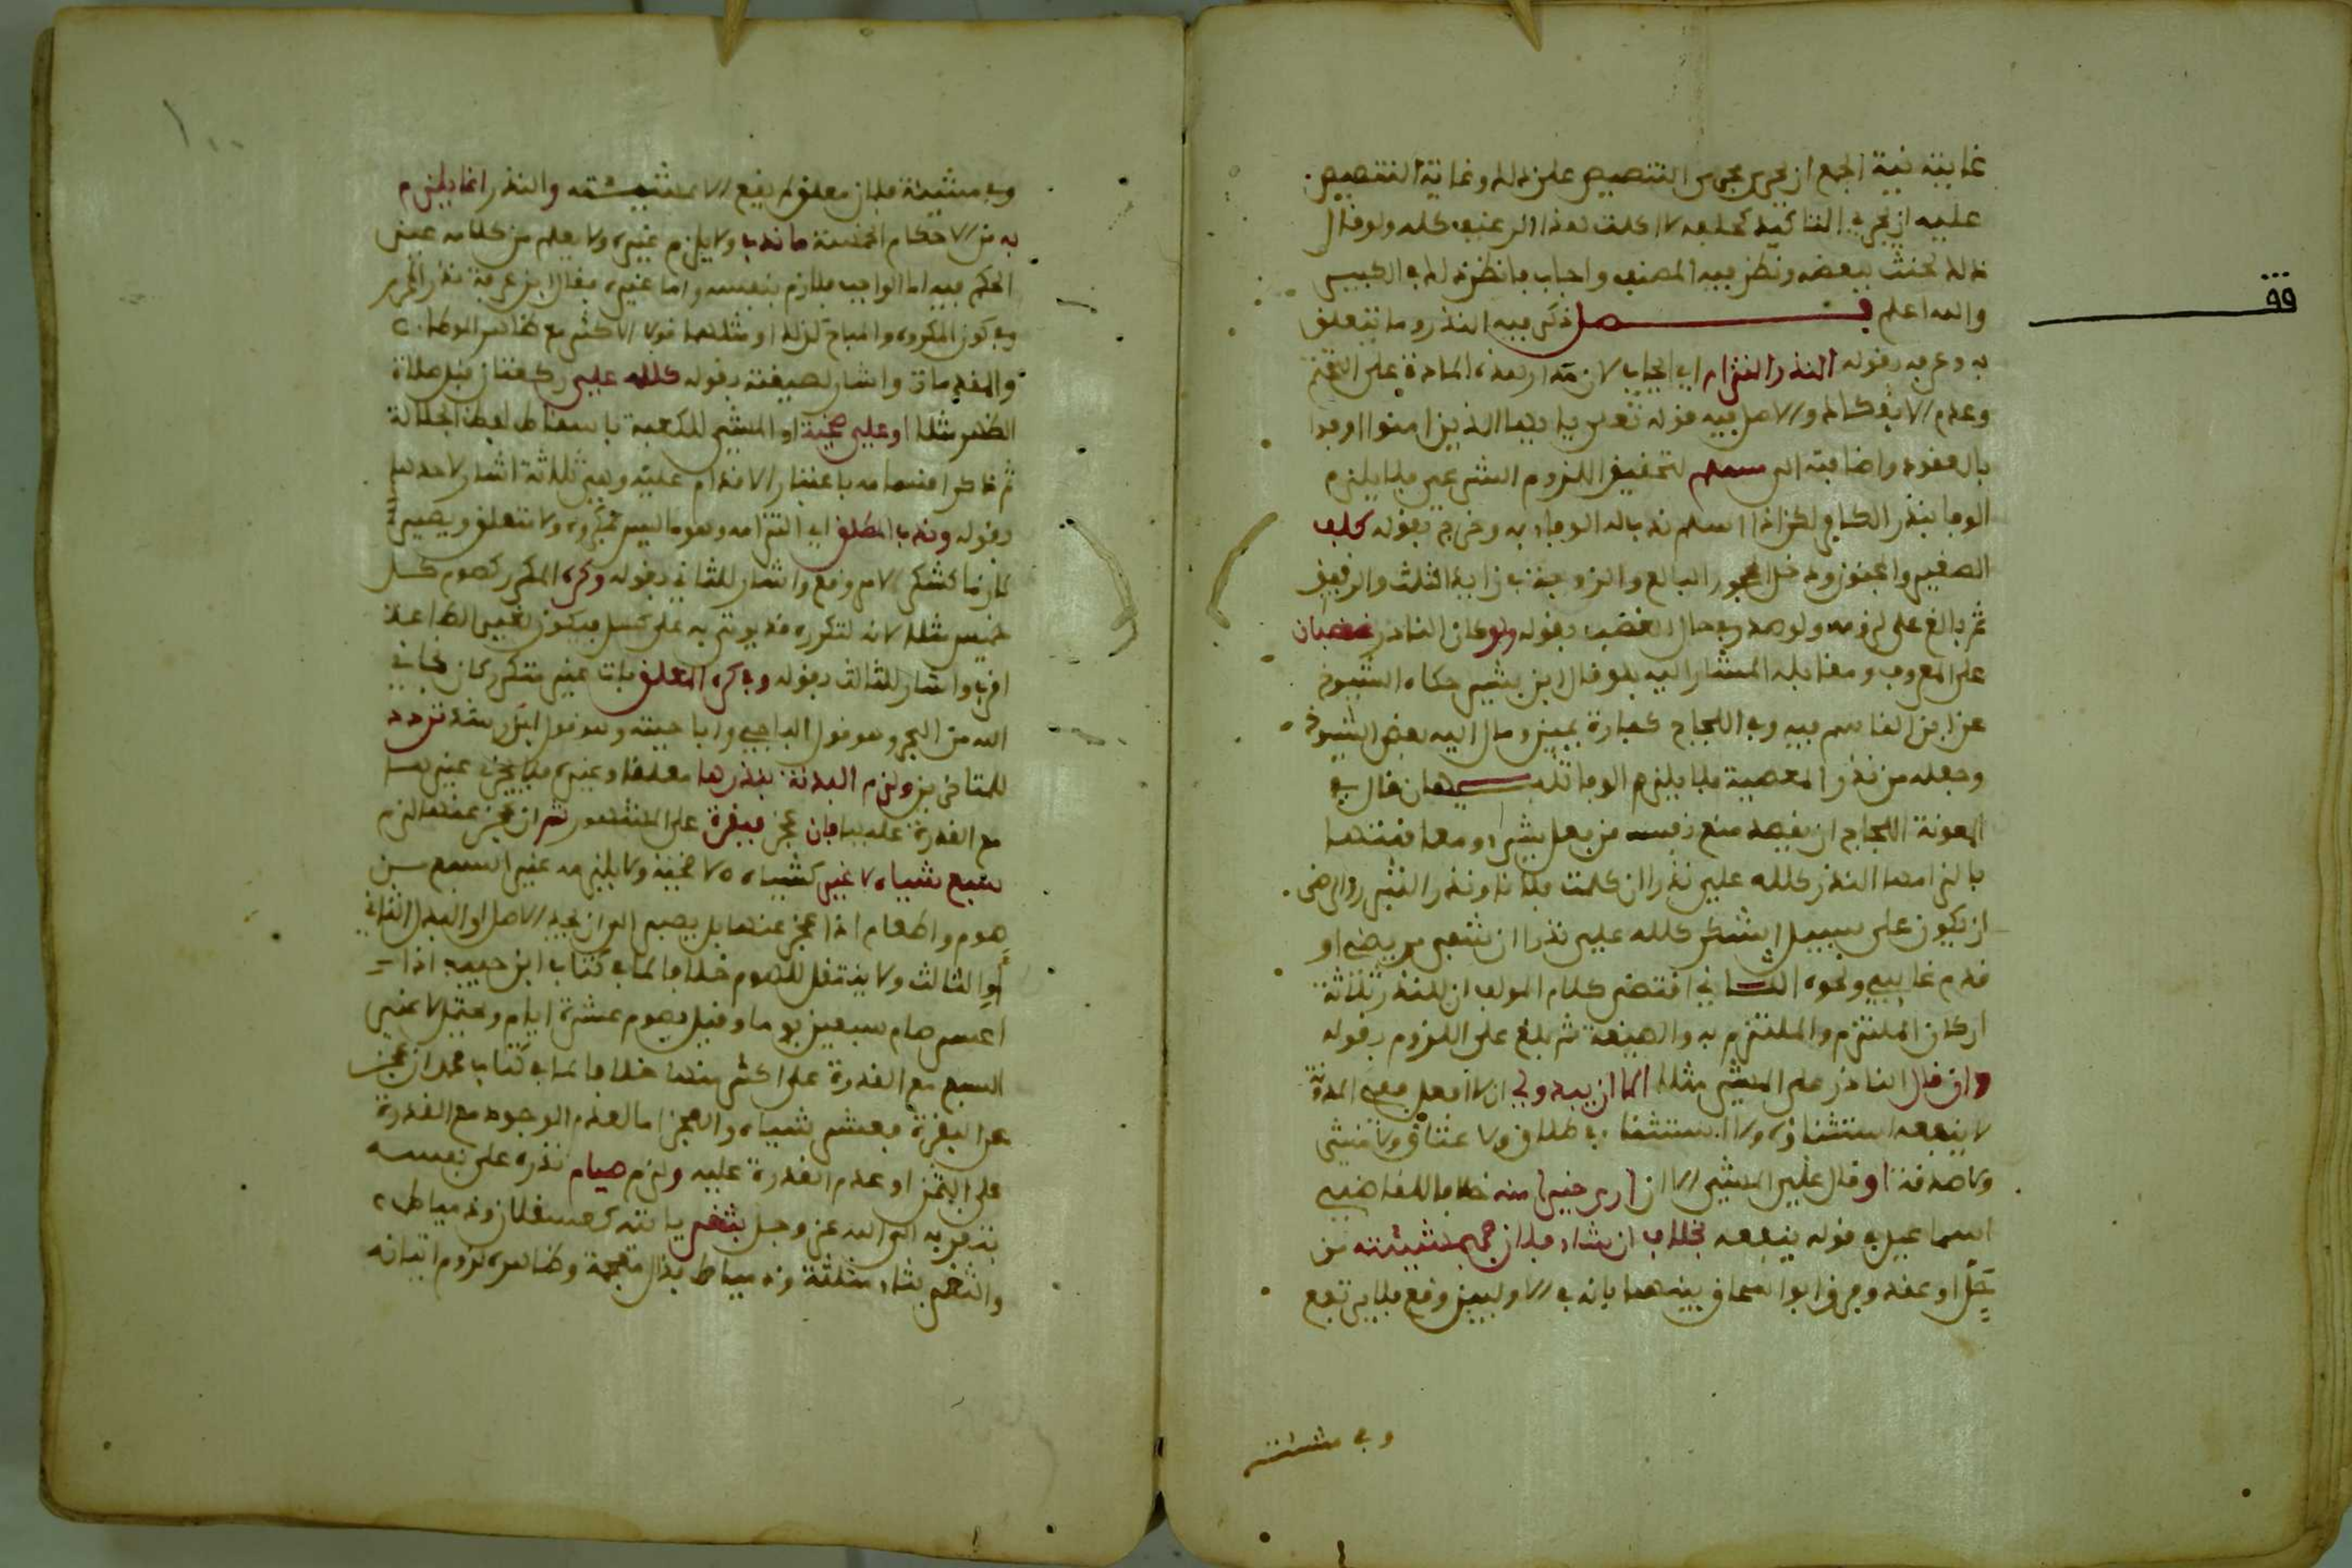 غايته نية الجمع ان يجري مجرى التنصيص على ذلك وغاية التنصيص
عليه ان يجري التاكيد كحلفه لا اكلت هذا الرغيف كله ولو قال
ذلك لحنث ببعضه ونظر فيه المصنف واجاب فانظر ذلك في الكبير
والله اعلم فصل ذكر فيه النذر وما يتعلق
به وعرفه بقوله النذر التزام اي ايجاب لان مدار هذه المادة على التحتم
وعدم الانفكاك والاصل فيه قوله تعلى يا ايها الذين امنوا اوفوا
بالعقود واضافته الى مسلم لتحقيق اللزوم الشرعي فلا يلزم
الوفا بنذر الكافر لكن اذا اسلم ندب له الوفاء به وخرج بقوله كلف
الصغير والمجنون ودخل المحجور البالغ والزوجة في زايد الثلث والرقيق
ثم بالغ على لزومه ولو صدر في حال الغضب بقوله ولو كان الناذر غضبان
على المعروف ومقابله المشار اليه بلو قال ابن بشير حكاه الشيوخ
عن ابن القاسم فيه وفي اللجاج كفارة يمين ومال اليه بعض الشيوخ
وجعله من نذر المعصية فلا يلزم الوفا تنبيهان قال في
المعونة اللجاج ان يقصد منع نفسه من فعل شيء ومعاقبتها
بالزامها النذر كلله علي نذر ان كلمت فلانا ونذر التبرر والرضى
ان يكون على سبيل الشكر كلله علي نذر ان شفي مريضي او
قدم غايبي ونحوه الثاني اقتضى كلام المولف ان للنذر ثلاثة
اركان الملتزم والملتزم به والصيغة ثم بالغ على اللزوم بقوله
وان قال الناذر علي المشي مثلا الا ان يبدو لي ان لا افعل ففي المدونة
لا ينفعه استثناؤه ولا استثناء في طلاق ولا عتاق ولا مشي
ولا صدقة او قال علي المشي الا ان ارى خيرا منه خلافا للقاضي
اسماعيل في قوله ينفعه بخلاف ان شاء فلان فبمشيئته من
حل او عقد وفرق ابو اسحاق بينهما بانه في الاوليين وقع فلا يرتفع
وفي مشيئة
وفي مشيئة فلان معلق لم يقع الا بمشيئته والنذر انما يلزم
به من الاحكام الخمسة ما ندب ولا يلزم غيره ولا يعلم من كلامه عين
الحكم فيه اما الواجب فلازم بنفسه واما غيره فقال ابن عرفة نذر المحرم
وفي كون المكروه والمباح كذلك او مثلهما قولا الاكثر مع ظاهر الموطا
والمقدمات واشار لصيغته بقوله كلله علي ركعتان قبل صلاة
الظهر مثلا او علي ضحية او المشي للكعبة باسقاط لفظ الجلالة
ثم ذكر اقسامه باعتبار الاقدام عليه وهي ثلاثة اشار لاحدها
بقوله وندب المطلق اي التزامه وهو ما ليس بمكرر ولا متعلق ويصير
لازما كشكر لامر وقع واشار للثاني بقوله وكره المكرر كصوم كل
خميس مثلا لانه لتكرره قد يوتى به على كسل فيكون لغير الطاعة
اقرب واشار للثالث بقوله وفي كره المعلق بات غير متكرر كان نجاني
الله من البحر وهو قول الباجي واباحته وهو قول ابن رشد تردد
للمتاخرين ولزم البدنة بنذرها معلقا وغيره فلا يجزي غيرها
مع القدرة عليها فان عجز فبقرة على المشهور ثم ان عجز عنها لزم
سبع شياه لا غير كشياه لا ضحية ولا يلزمه غير السبع من
صوم واطعام اذا عجز عنها بل يصبر الى ان يجد الاصل او البدل الثاني
او الثالث ولا ينتقل للصوم خلافا لما في كتاب ابن حبيب اذا
اعسر صام سبعين يوما وقيل يصوم عشرة ايام ويحتمل لا غير
السبع مع القدرة على اكثر منها خلافا لما في كتاب محمد ان عجز
عن البقرة فعشر شياه والعجز اما لعدم الوجود مع القدرة
على الثمن او عدم القدرة عليه ولزم صيام نذره على نفسه
يتقرب به الى الله عز وجل بثغر ياتيه كعسقلان ودمياط
والثغر بثاء مثلثة ودمياط بذال معجمة وظاهره لزوم اتيانه